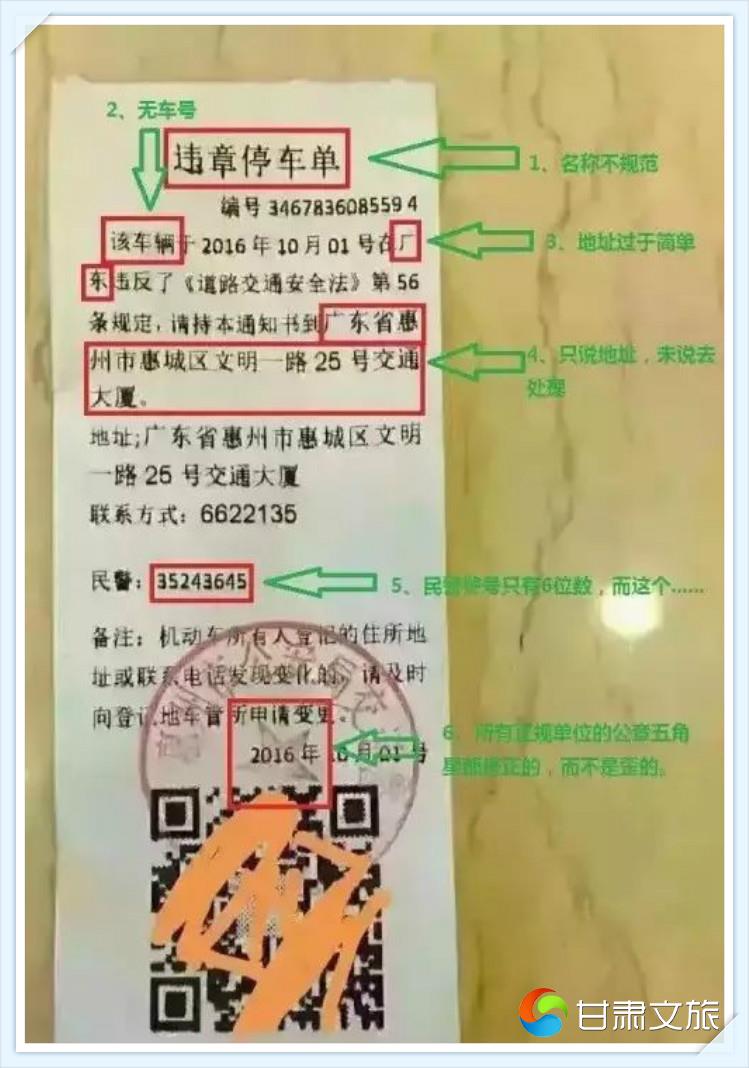 2、无车号
违章停车单
1、名称不规范
编号 3467836085594
该车辆于 2016 年 10 月 01 号在广
3、地址过于简单
东违反了《道路交通安全法》第 56
条规定，请持本通知书到广东省惠
州市惠城区文明一路 25 号交通
大厦。
4、只说地址，未说去
处理
地址;广东省惠州市惠城区文明
一路 25 号交通大厦
联系方式：6622135
民警：35243645
5、民警警号只有6位数，而这个……
备注：机动车所有人登记的住所地
址或联系电话发现变化的，请及时
向登记地车管所申请变更。
2016 年 10 月 01 号
6、所有正规单位的公章五角
星都是正的，而不是歪的。
甘肃文旅